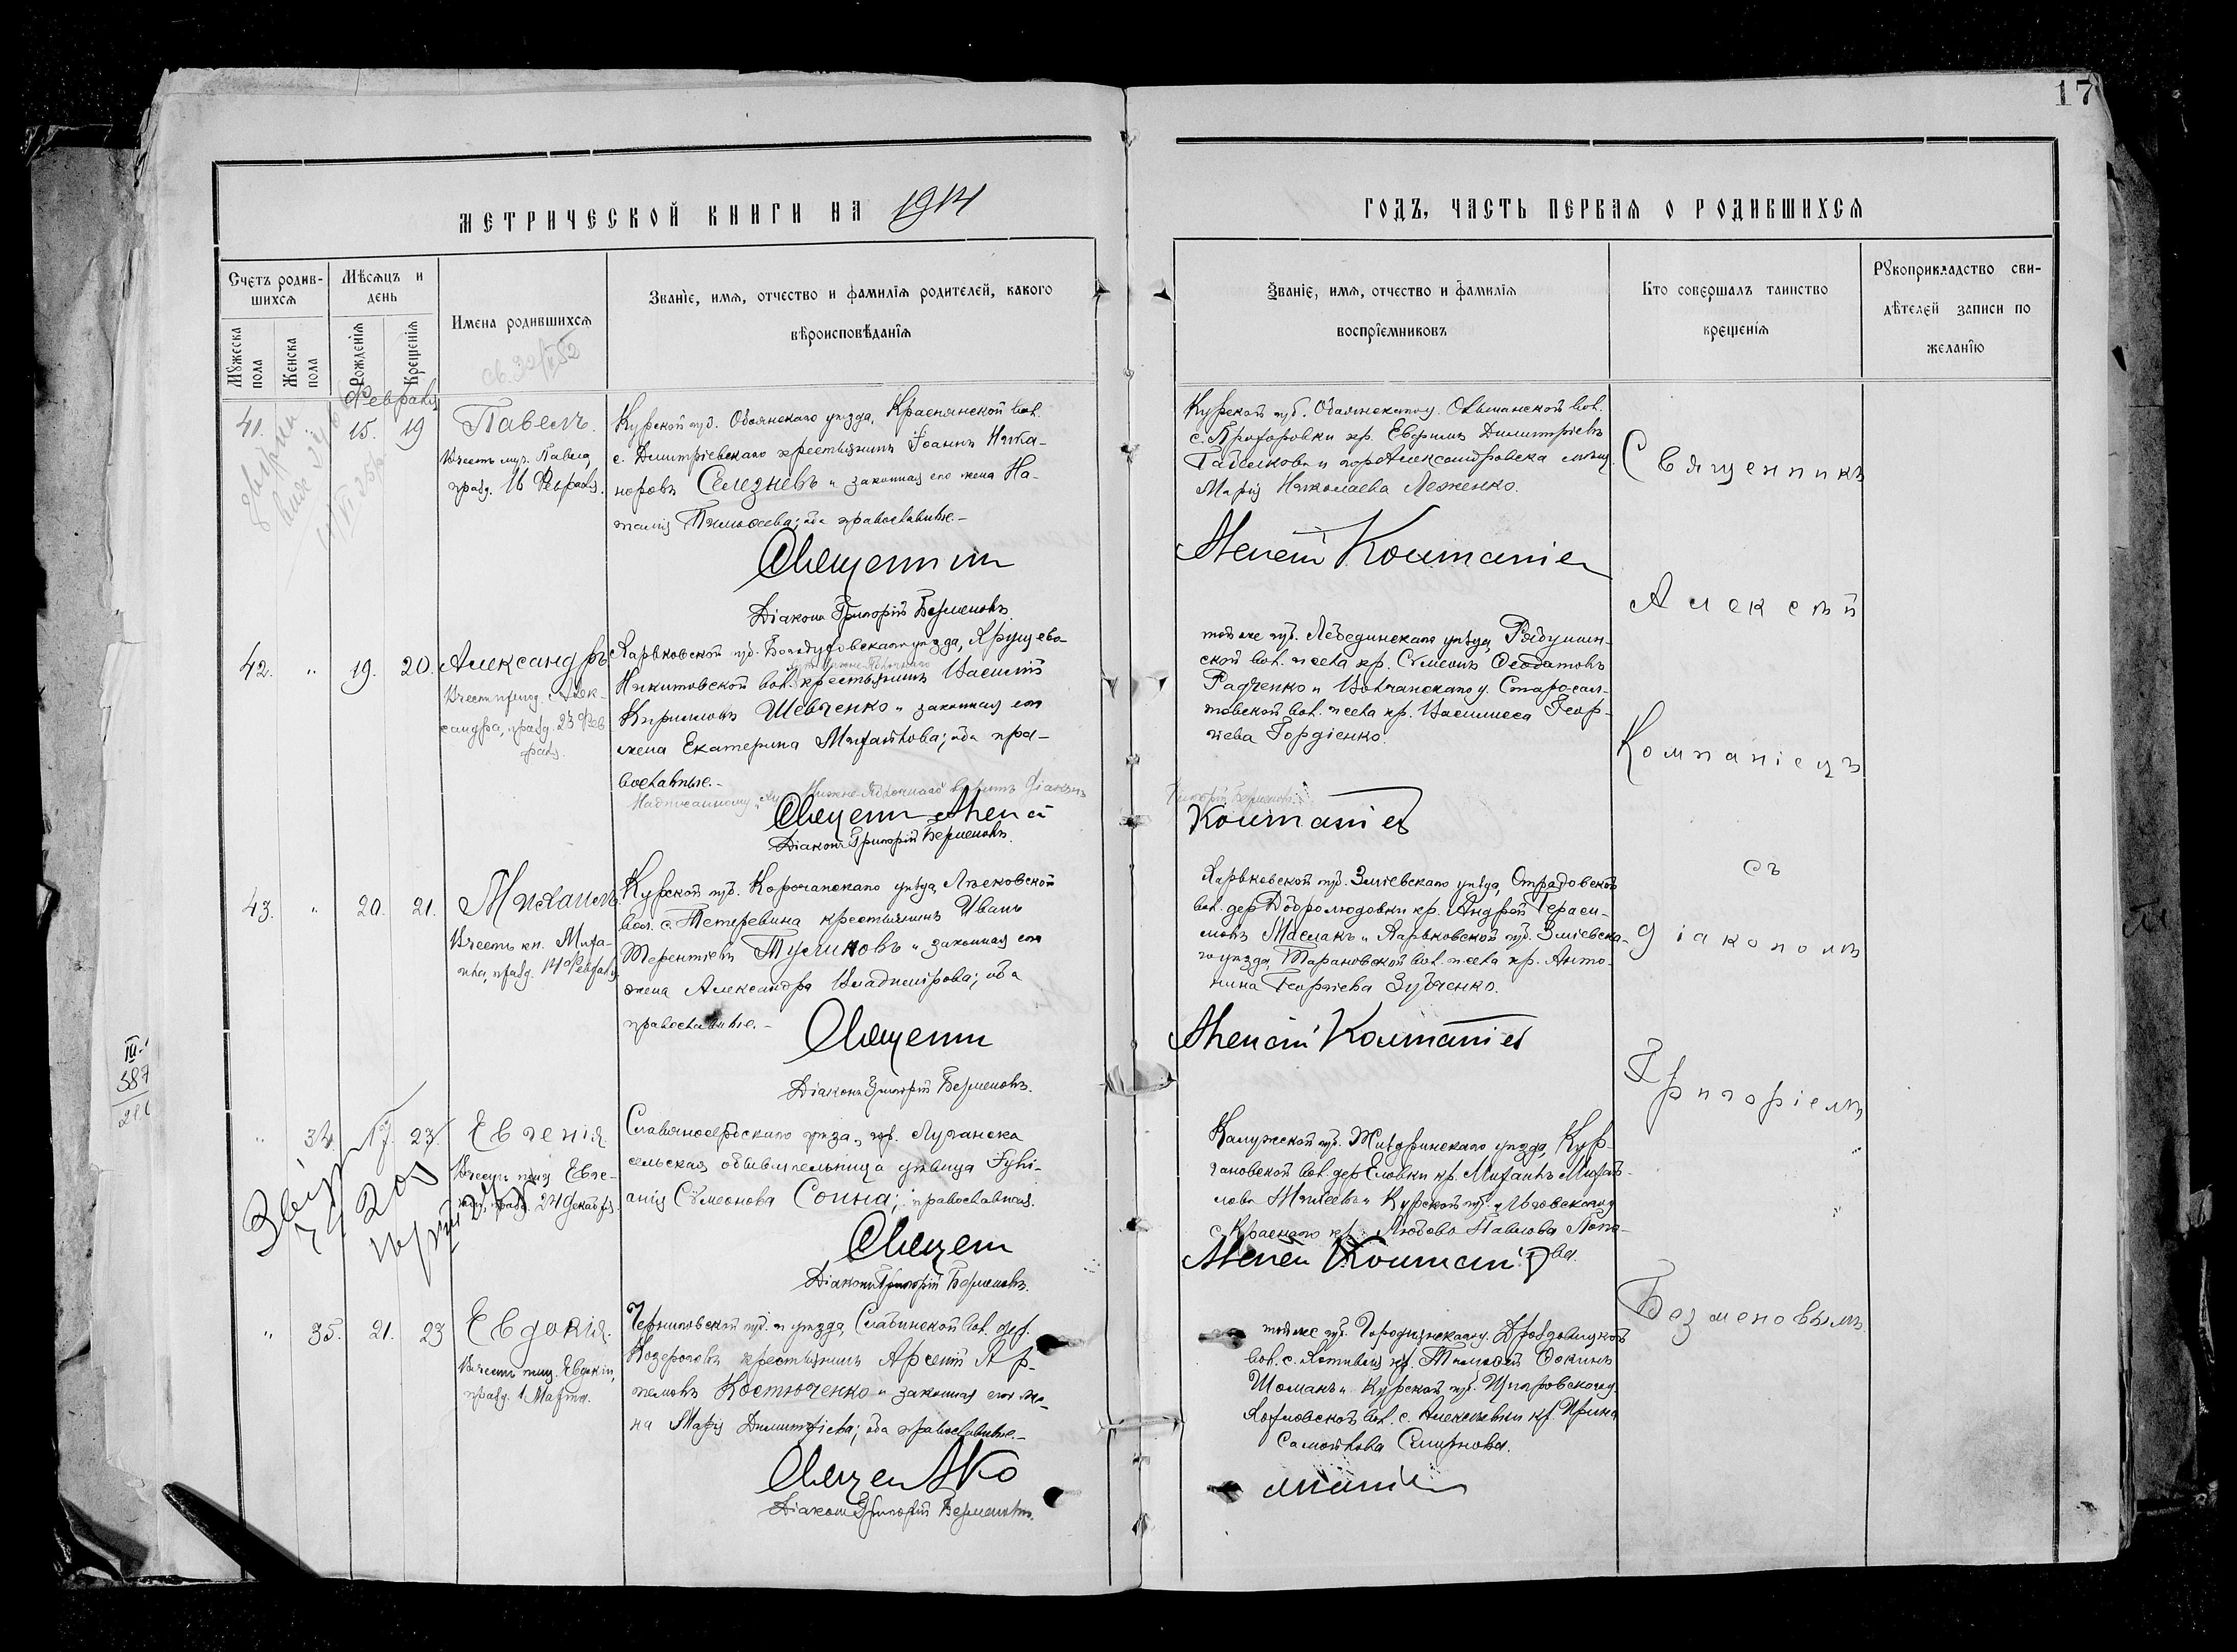 17
МЕТРИЧЕСКОЙ КНИГИ НА 1914
ГОДЪ, ЧАСТЬ ПЕРВАЯ О РОДИВШИХСЯ
Счетъ родив-
шихся
Мѣсяцъ и
день
Мужеска пола
Женска пола
Рожденія
Крещенія
Имена родившихся
Званіе, имя, отчество и фамилія родителей, какого
вѣроисповѣданія
Званіе, имя, отчество и фамилія
воспріемниковъ
Кто совершалъ таинство
крещенія
Рукоприкладство сви-
дѣтелей записи по
желанію
Февраля
41. 15. 19
Павелъ.
Въ честь муч. Павла,
празд. 16 Февраля.
Курской губ. Обоянскаго уѣзда, Краснянской вол.
с. Димитріевскаго крестьянинъ Іоаннъ Ника-
норовъ Селезневъ и законная его жена На-
талія Тимоѳеева; оба православные.-
Священник
Діаконъ Григорій Безменовъ.
Курской губ. Обоянскаго у. Ольшанской вол.
с. Прохоровки кр. Евфимъ Димитріевъ
Табелковъ и гор. Александровска мѣщ.
Марія Николаева Леженко.
Алексій Компаніец
42. " 19. 20.
Александръ
Въ честь препод. Алек-
сандра, празд. 23 Фев-
раля.
Харьковской губ. Богодуховскаго уѣзда, Хрущево-
Никитовской вол. крестьянинъ Василій
Кирилловъ Шевченко и законная его
жена Екатерина Михайлова; оба пра-
вославные.-
Надписанному "хут. Нижне-Яблочнаго" вѣрить Діаконъ
Григорій Безменовъ.
Священн Алексій
Компаніец
Діаконъ Григорій Безменовъ.
той же губ. Лебединскаго уѣзда, Рябушин-
ской вол. и села кр. Сѵмеонъ Ѳеодотовъ
Радченко и Волчанскаго у. Старо-сал-
товской вол. и села кр. Василисса Геор-
гіева Гордіенко.
43. " 20. 21.
Михаилъ.
Въ честь кн. Миха-
ила, празд. 14 Февраля.
Курской губ. Корочанскаго уѣзда,
вол. с. Тетеревина крестьянинъ Иванъ
Терентіевъ Тулиновъ и законная его
жена Александра Владимірова; оба
православные.-
Священн
Діаконъ Григорій Безменовъ.
Харьковской губ. Зміевскаго уѣзда, Отрадовской
вол. дер. Добролюдовки кр. Андрей Гераси-
мовъ Маслакъ и Харьковской губ. Зміевска-
го уѣзда, Тарановской вол. и села кр. Анто-
нина Георгіева Зубченко.
Алексій Компаніец
" 34. 17. 23.
Евгенія.
Въ честь прмц. Евге-
ніи, празд. 24 Декабря.
Славяносербскаго уѣзда, гор. Луганска
сельская обывательница дѣвица Іулі-
анія Сѵмеонова Сопина; православная.
Священ
Діаконъ Григорій Безменовъ.
Калужской губ. Жиздринскаго уѣзда, Кур-
гановской вол. дер. Еловки кр. Михаилъ Михай-
ловъ Жилѣевъ и Курской губ. и Льговскаго у.
с. Краснаго кр. Любовь Павлова Попо-
ва.
Алексѣй Компаніец
" 35. 21. 23
Евдокія.
Въ честь прмц. Евдокіи,
празд. 1 Марта.
Черниговской губ. и уѣзда, Слабинской вол. дер.
Козероговъ крестьянинъ Арсеній Ар-
темовъ Костюченко и законная его же-
на Марія Димитріева; оба православные.-
Священ А Ко
мпаніец
Діаконъ Григорій Безменовъ.
той же губ. Городнянскаго у. Дроздовицкой
вол. с. Хотивля кр. Тимоѳей Ѳокинъ
Шоманъ и Курской губ. Щигровскаго у.
Хохловской вол. с. Алексѣевки кр. Ирина
Самойлова Смирнова.
Священникъ
Алексѣй
Компаніецъ
съ
діакономъ
Григоріемъ
Безменовымъ